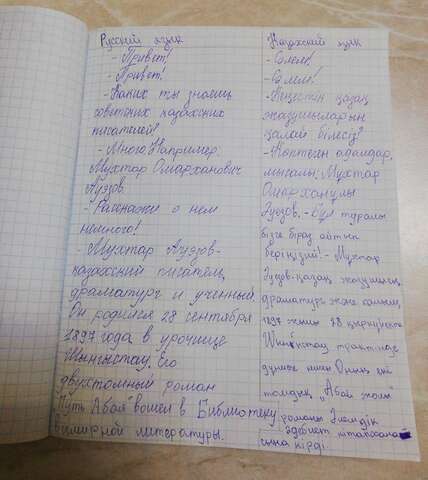 Русский язык
- Привет!
- Привет!
- Каких ты знаешь
советских казахских
писателей?
- Много. Например:
Мухтар Омарханович
Ауэзов.
- Расскажи о нем
немного!
- Мухтар Ауэзов-
казахский писатель,
драматург и ученный.
Он родился 28 сентября
1897 года в урочище
Шынгыстау. Его
двухтомный роман
"Путь Абая" вошел в Библиотеку
всемирной литературы.
Казахский язык
- Сәлем!
- Сәлем!
- Кеңестік қазақ
жазушыларын
қалай білесіз?
- Көптеген адамдар,
мысалы: Мұхтар
Омарханұлы
Әуезов. - Бұл туралы
бізге біраз айтып
беріңізші! - Мұхтар
Әуезов-қазақ жазушысы,
драматург және ғалым.
1897 жылы 28 қыркүйекте
Шыңғыстау трактінде
дүниеге келген Оның екі
томдық "Абай жолы"
романы Әлемдік
әдебиет кітапханасы
на кірді.